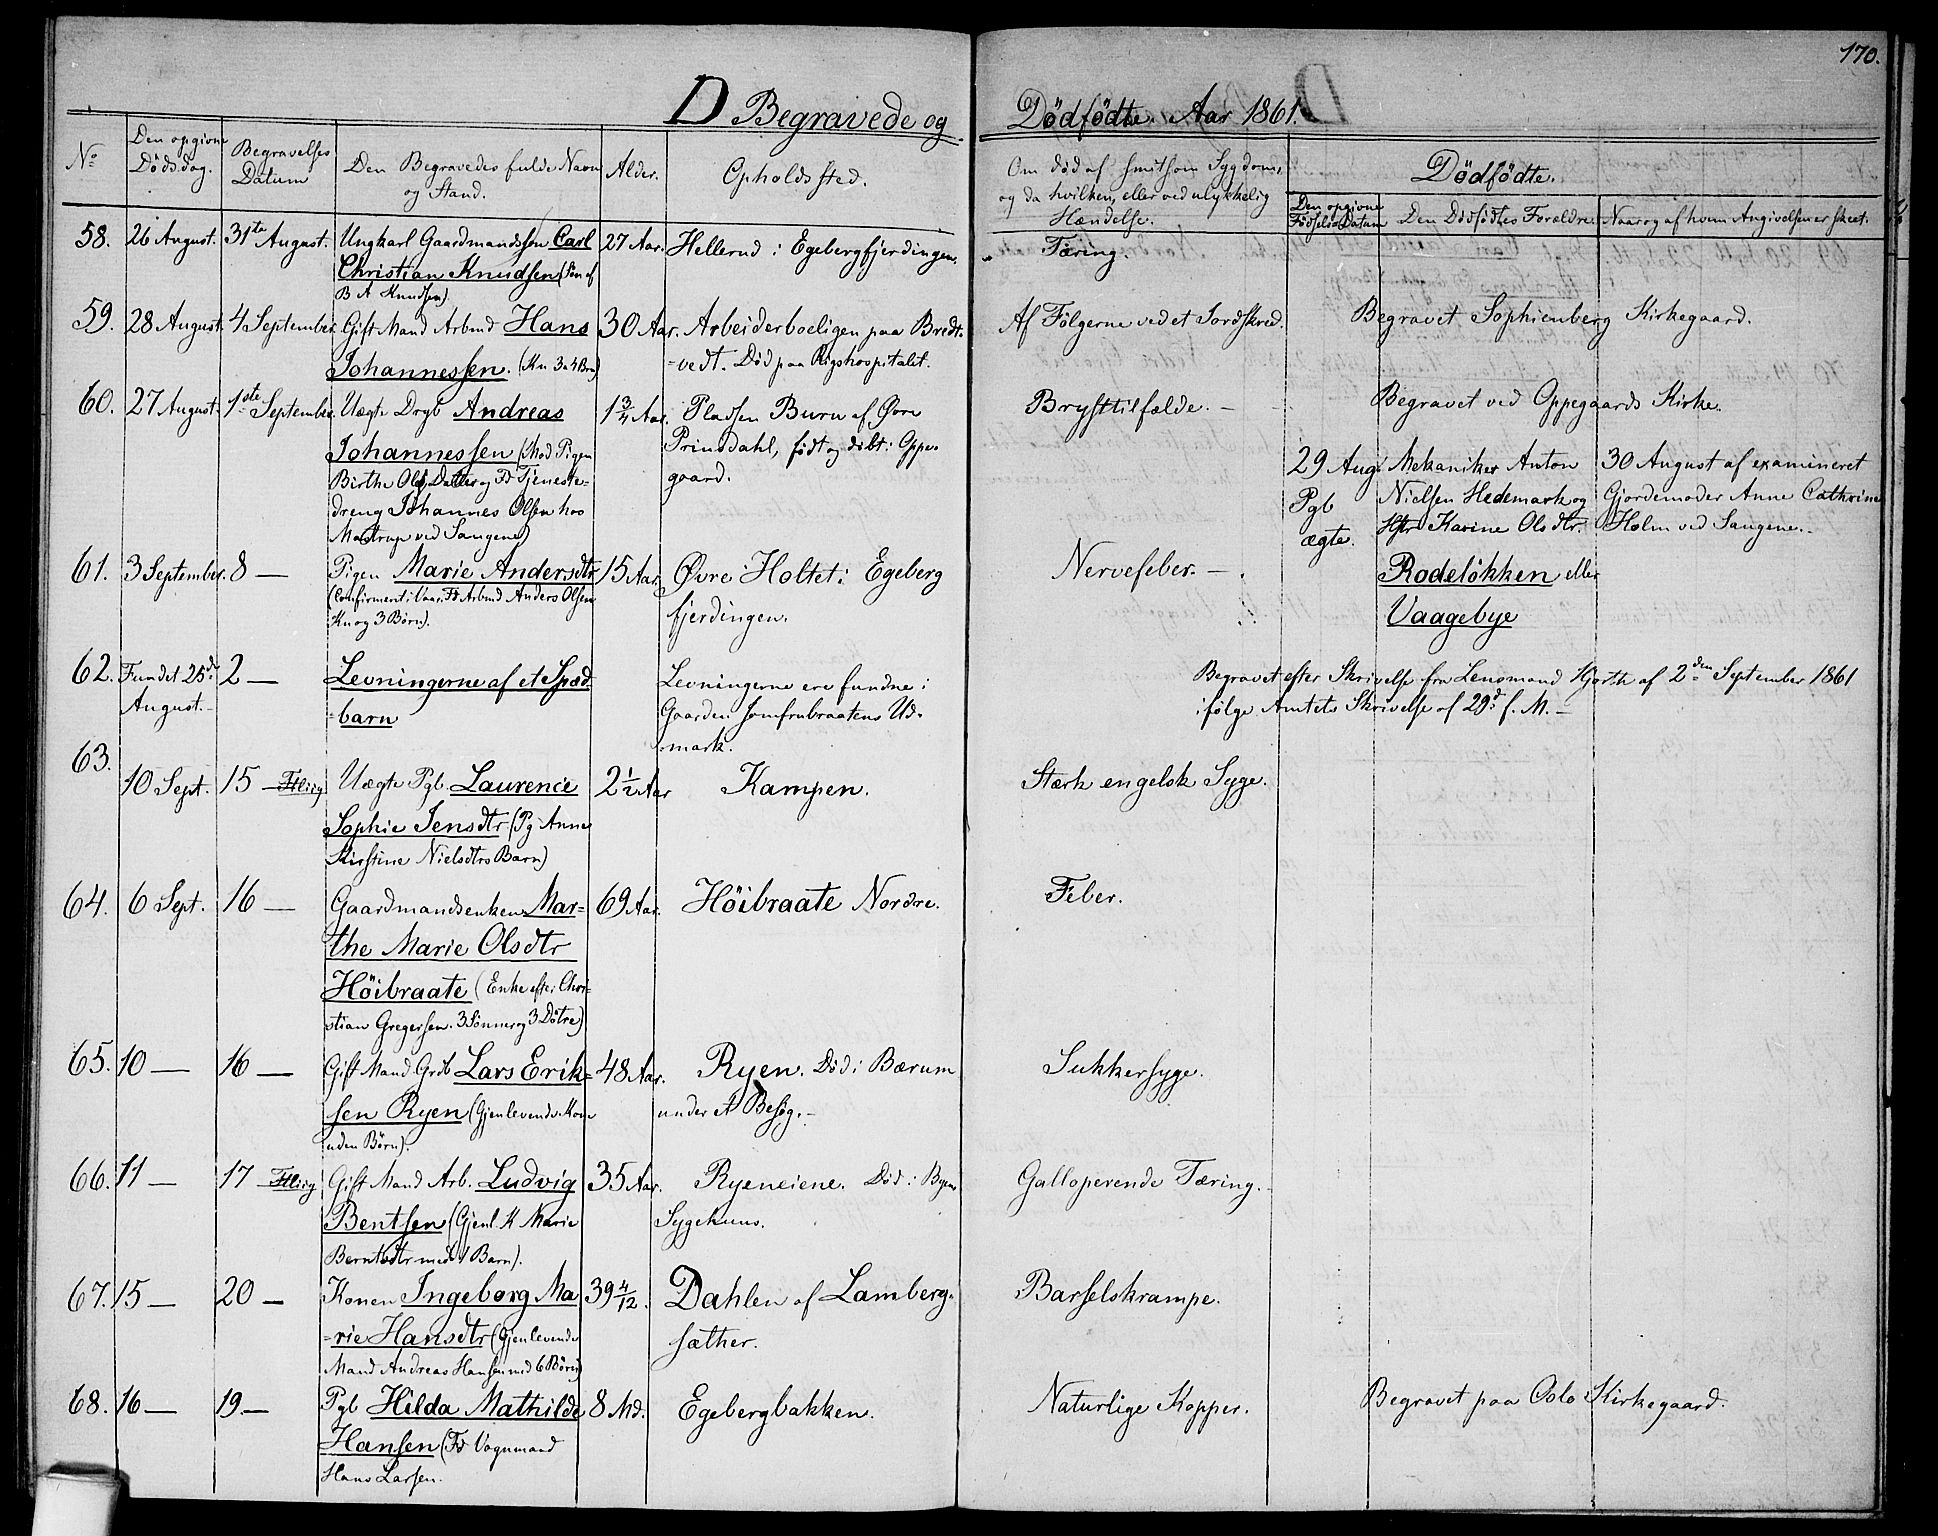 170.
D Begravede og Dödfödte. Aar 1861.
No
Den opgivne Dödsdag.
Begravelses Datum
Den Begravedes fulde Navn og Stand.
Alder.
Opholdssted.
Om död af smitsom Sygdom, og da hvilken, eller ved ulykkelig Hændelse.
Dödfödte.
Den opgivne Födsels Datum
Den Dödfödtes Forældre.
Naar og af hvem Angivelsen er skeet.
58. 26 August. 31te August. Ungkarl Gaardmandssøn Carl 27 Aar. Hellerud i Egebergfjerdingen. Tæring.
Christian Knudsen (Søn af
B A Knudsen)
59. 28 August. 4 September. Gift Mand Arbmd Hans 30 Aar. Arbeiderboeligen paa Bredt- Af Fölgerne ved et Jordskred. Begravet Sophienberg Kirkegaard.
Johannessen. (Kn 3 a 4 Brn) =vedt. Död paa Rigshospitalet.
60. 27 August. 1ste September. Uægte Drgb Andreas 1 3/4 Aar. Pladsen Burn af Øvre Brysttilfælde. — Begravet ved Oppegaards Kirke.
Johannessen (Mod Pigen Prinsdahl, födt og döbt i Oppe-
Birthe Ols Datter og Fr Tjeneste- gaard.
dreng Johannes Olsen hos
Mastrup ved Sangene)
29 Aug. Mekaniker Anton 30 August af examineret
Pgb Nielsen Hedemark og Gjordemoder Anne Cathrine
ægte. Hstr Karine Olsdtr. Holm ved Sangene.
Rodelökken eller
Vaagebye
61. 3 September. 8 — Pigen Marie Andersdtr 15 Aar. Øvre Holtet i Egeberg Nervefeber. —
(Confirment i Vaar. Fr Arbmd Anders Olsen fjerdingen.
Kn og 3 Börn).
62. Fundet 25de 2 — Levningerne af et Spæd Levningerne ere fundne i Begravet efter Skrivelse fra Lensmand Hjorth af 2den September 1861
August. =barn Gaarden Jomfrubraatens Ud- ifølge Amtets Skrivelse af 29d f. M. —
mark.
63. 10 Sept. 15 — Uægte Pgb. Laurence 2 1/2 Aar Kampen. Stærk engelsk Syge.
Sophie Jensdtr (Pg Anne
Kirstine Nielsdtrs Barn)
64. 6 Sept. 16 — Gaardmandsenken Mar- 69 Aar. Höibraate Nordre. Feber.
the Marie Olsdtr
Höibraate (Enke efter Chri-
stian Gregersen. 3 Sönner og 3 Dötre)
65. 10 — 16 — Gift Mand Grdb Lars Erik- 48 Aar. Ryen. Död i Bærum Sukkersyge.
sen Ryen (Gjenlevende Kone under et Besøg. —
uden Børn).
66. 11 — 17 Gift Mand Arb. Ludvig 35 Aar. Ryeneiene. Död i Byens Galloperende Tæring.
Bentsen (Gjenl. K Marie Sygehuus.
Berntsdtr med 1 Barn).
67. 15 — 20 — Konen Ingeborg Ma 39 4/12. Dahlen af Lamberg- Barselskrampe.
=rie Hansdtr (Gjenlevende sæther.
Mand Andreas Hansen med 6 Börn)
68. 16 — 19. — Pgb Hilda Mathilde 8 Md. Egebergbakken. Naturlige Kopper. Begravet paa Oslo Kirkegaard.
Hansen (Fr Vognmand
Hans Larsen.